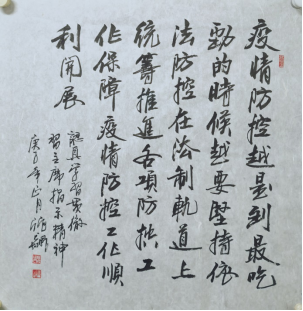 疫情防控越是到最吃
勁的時候越要堅持依
法防控在法制軌道上
統籌推進各項防控工
作保障疫情防控工作順
利開展
認真学習貫徹
習主席指示精神
庚子年正月